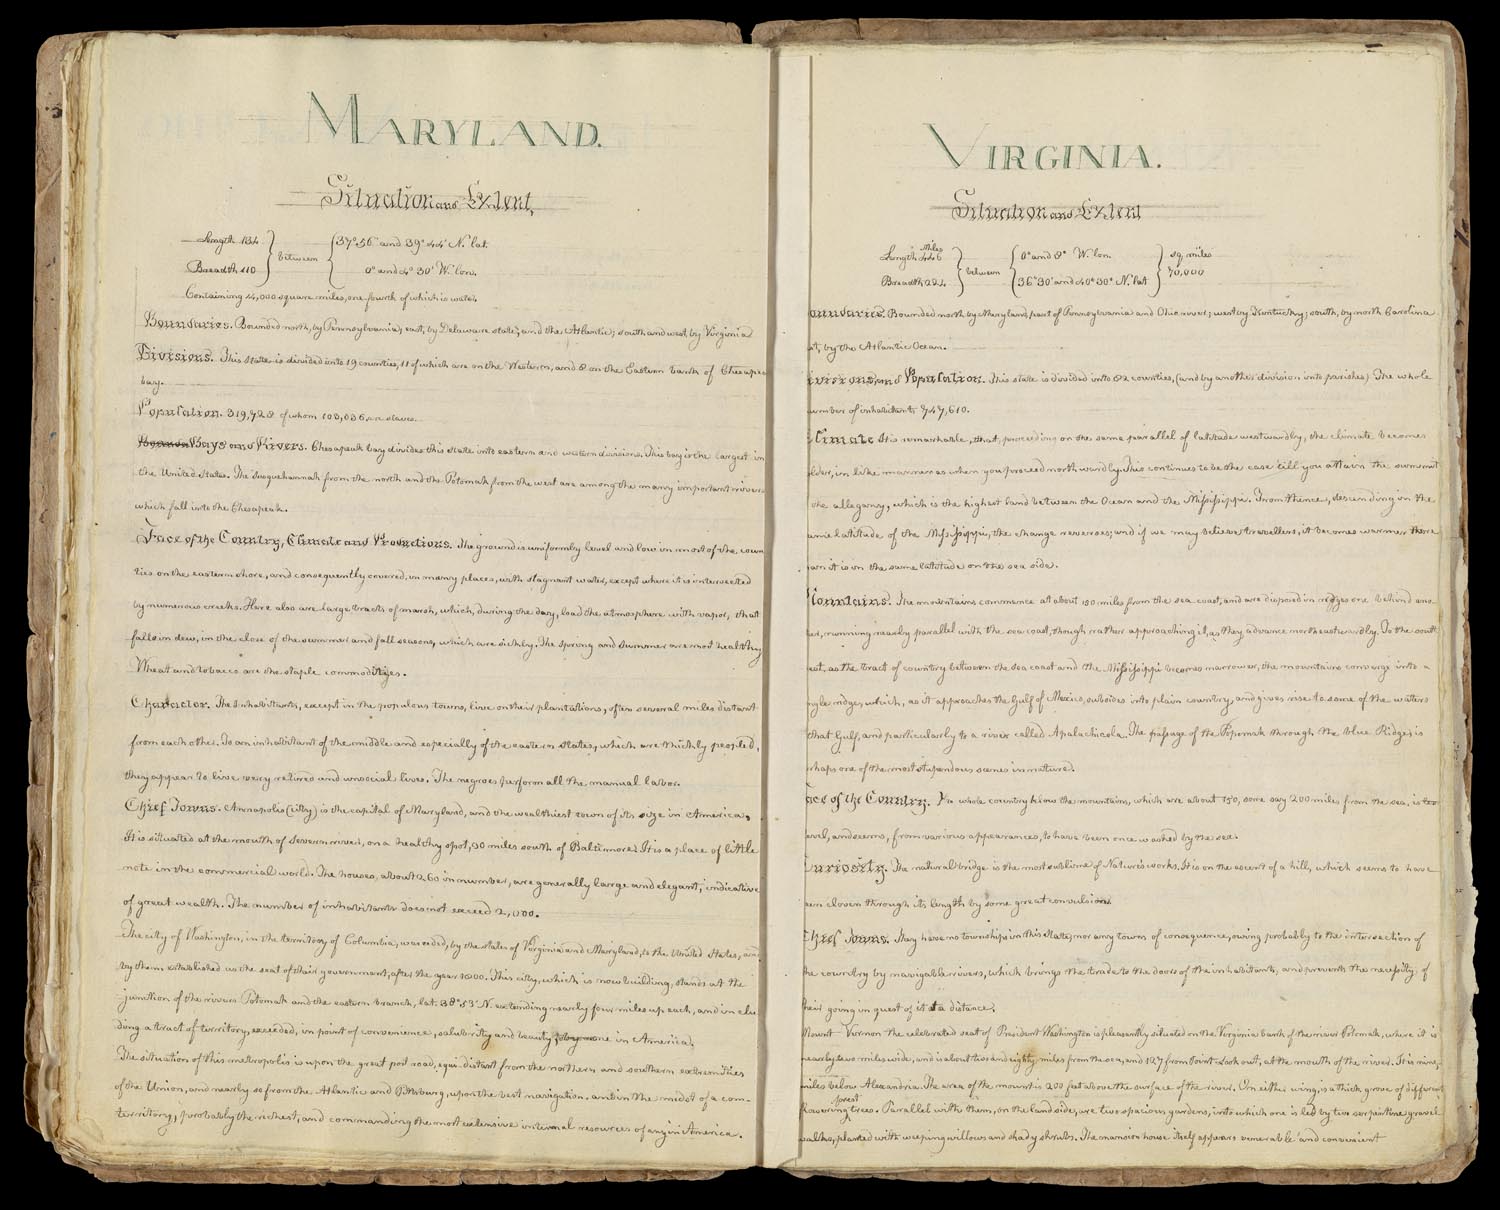 MARYLAND.
Situation and Extent,
Length 134 } between { 37° 56' and 39° 44' N. lat.
Breadth 110 0° and 4° 30' W. lon.
Containing 14,000 square miles, one fourth of which is water.
Boundaries. Bounded north, by Pennsylvania; east, by Delaware state, and the Atlantic; south and west, by Virginia
Divisions. This state is divided into 19 counties, 11 of which are on the Western, and 8 on the Eastern bank of Chesape
bay.
Population. 319,728 of whom 103,036 are slaves.
Bays and Rivers. Chesapeak bay divides this state into eastern and western divisions. This bay is the largest in
the United States. The Susquehannah from the north and the Potomak from the west are among the many important rivers
which fall into the Chesapeak.
Face of the Country, Climate and Productions. The ground is uniformly level and low in most of the coun
ties on the eastern shore, and consequently covered, in many places, with stagnant water, except where it is intersected
by numerous creeks. Here also are large tracts of marsh, which, during the day, load the atmosphere with vapor, that
falls in dew, in the close of the summer and fall seasons, which are sickly. The spring and summer are most healthy
Wheat and tobacco are the staple commodities.
Character. The Inhabitants, except in the populous towns, live on their plantations, often several miles distant
from each other. To an inhabitant of the middle and especially of the eastern states, which are thickly peopled,
they appear to live very retired and unsocial lives. The negroes perform all the manual labor.
Chief Towns. Annapolis (city) is the capital of Maryland, and the wealthiest town of its size in America.
It is situated at the mouth of Severn river, on a healthy spot, 30 miles south of Baltimore. It is a place of little
note in the commercial world. The houses, about 260 in number, are generally large and elegant, indicative
of great wealth. The number of inhabitants does not exceed 2,000.
The city of Washington, in the territory of Columbia, was ceded, by the states of Virginia and Maryland, to the United States, and
by them established as the seat of their government, after the year 1800. This city, which is now building, stands at the
junction of the rivers Potomak and the eastern branch, lat. 38° 53' N. extending nearly four miles up each, and inclu
ding a tract of territory, exceeded, in point of convenience, salubrity, and beauty, by none in America.
The situation of this metropolis is upon the great post road, equi-distant from the northern and southern extremities
of the Union, and nearly so from the Atlantic and Pittsburg, upon the best navigation, and in the midst of a com-
territory, probably the richest, and commanding the most extensive internal resources of any in America.
VIRGINIA.
Situation and Extent
Length 446 miles } between { 0° and 8° W. lon. } sq. miles
Breadth 224. 36° 30' and 40° 30' N. lat 70,000
oundaries. Bounded north by Maryland, part of Pennsylvania and Ohio river; west by Kentucky; south, by north Carolina
st, by the Atlantic Ocean.
ivisions and Population. This state is divided into 82 counties, (and by another division into parishes) The whole
umber of inhabitants 747,610.
Climate It is remarkable, that, proceeding on the same parallel of latitude westwardly, the climate becomes
older, in like manner as when you proceed northwardly. This continues to be the case 'till you attain the summit
the allegany, which is the highest land between the Ocean and the Mississippi. From thence, descending in the
ame latitude of the Mississippi, the change reverses; and if we may believe travellers, it becomes warmer there
han it is on the same latitude on the sea side.
Mountains. The mountains commence at about 150 miles from the sea coast, and are disposed in ridges one behind ano
her, running nearly parallel with the sea coast, though rather approaching it, as they advance northeastwardly. To the south
est, as the tract of country between the sea coast and the Mississippi becomes narrower, the mountains converge into a
ngle ridge, which, as it approaches the Gulf of Mexico, subsides into plain country, and gives rise to some of the waters
that Gulf, and particularly to a river called Apalachicola. The passage of the Potomak through the blue Ridge, is
rhaps one of the most stupendous scenes in nature.
ace of the Country. The whole country below the mountains, which are about 150, some say 200 miles from the sea, is
evel, and seems, from various appearances, to have been once washed by the sea.
Curiosity. The natural bridge is the most sublime of Nature's works. It is on the ascent of a hill, which seems to have
een cloven through its length by some great convulsion.
Chief Towns. They have no townships in this State, nor any towns of consequence, owing probably to the intersection of
he country by navigable rivers, which brings the trade to the doors of the inhabitants, and prevents the necessity of
heir going in quest of it at a distance.
Mount Vernon the celebrated seat of President Washington is pleasantly situated on the Virginia bank of the river Potomak, where it is
nearly two miles wide, and is about two and eighty miles from the sea, and 127 from Point Look out, at the mouth of the river. It is nine
miles below Alexandria. The area of the mount is 200 feet above the surface of the river. On either wing, is a thick grove of different
flowering forest trees. Parallel with them, on the land side, are two spacious gardens, into which one is led by two serpentine gravel
walks, planted with weeping willows and shady shrubs. The mansion house itself appears venerable and convenient